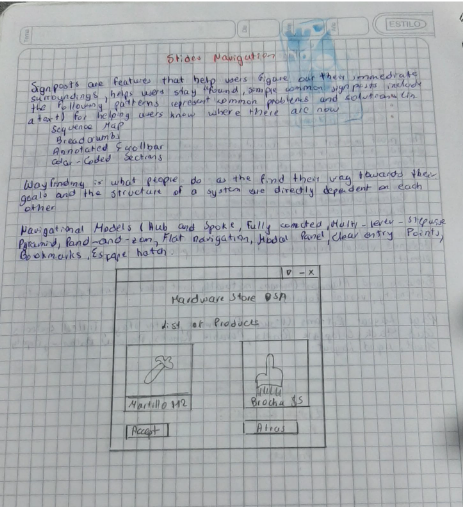 ESTILO
Slides Navigation
Signposts are features that help users figure out their immediate
surroundings, helps users stay found, some common signposts include
the following patterns represent common problems and solutions (in
a text) for helping users know where there are now
Sequence Map
Breadcrumbs
Annotated Scrollbar
Color-Coded Sections
Wayfinding is what people do as the find their way towards their
goals and the structure of a system are directly dependent on each
other
Navigational Models (Hub and Spoke, Fully conected, Multi-level-
Pyramid, Pand-and-zon, Flat Navigation, Modal Panel, Clear entry Points,
Bookmarks, Escape hatch
- X
Hardware Store
List of Products
Martillo $12
Brocha $5
Accept
Atras